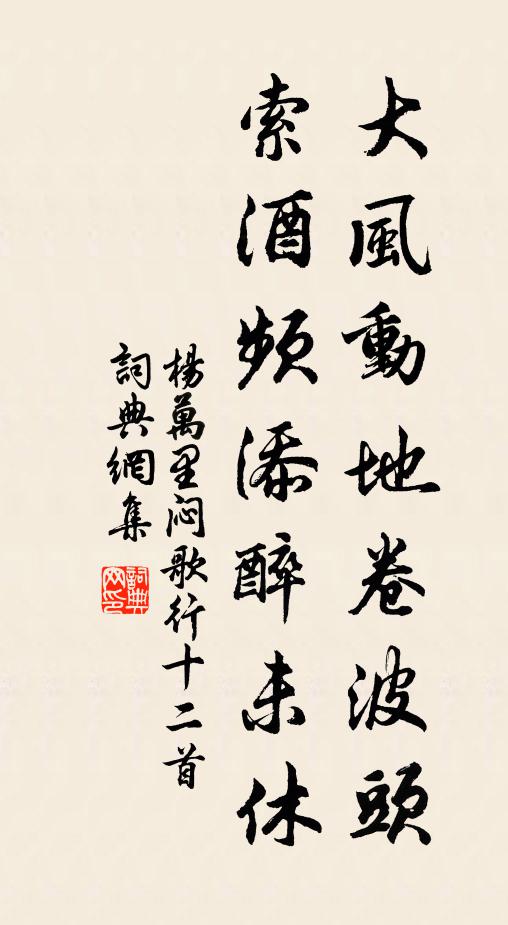 大風動地卷波頭
索酒頻添醉未休
楊萬里闷歌行十二首
詞典網集
詞典网印